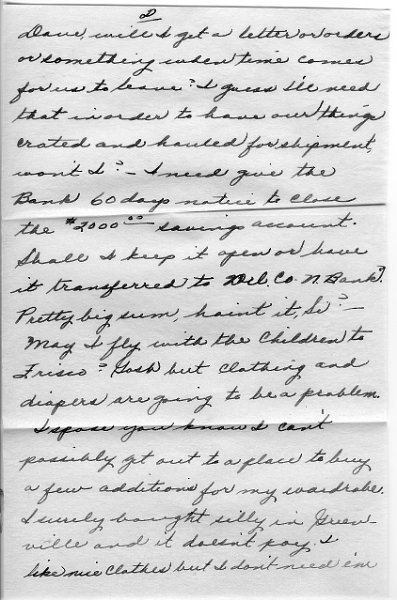 2
Dave, will I get a letter or orders
or something when time comes
for us to leave? I guess I'll need
that in order to have our things
crated and hauled for shipment,
won't I? — I need give the
Bank 60 days notice to close
the $2000.00 savings account.
Shall I keep it open or have
it transferred to Del. Co. N. Bank?
Pretty big sum, haint it, Si? —
May I fly with the Children to
Frisco? Gosh but clothing and
diapers are going to be a problem.
I spose you know I can't
possibly get out to a place to buy
a few additions for my wardrobe.
I surely bought silly in Green-
ville and it doesn't pay. I
like nice clothes but I don't need 'em